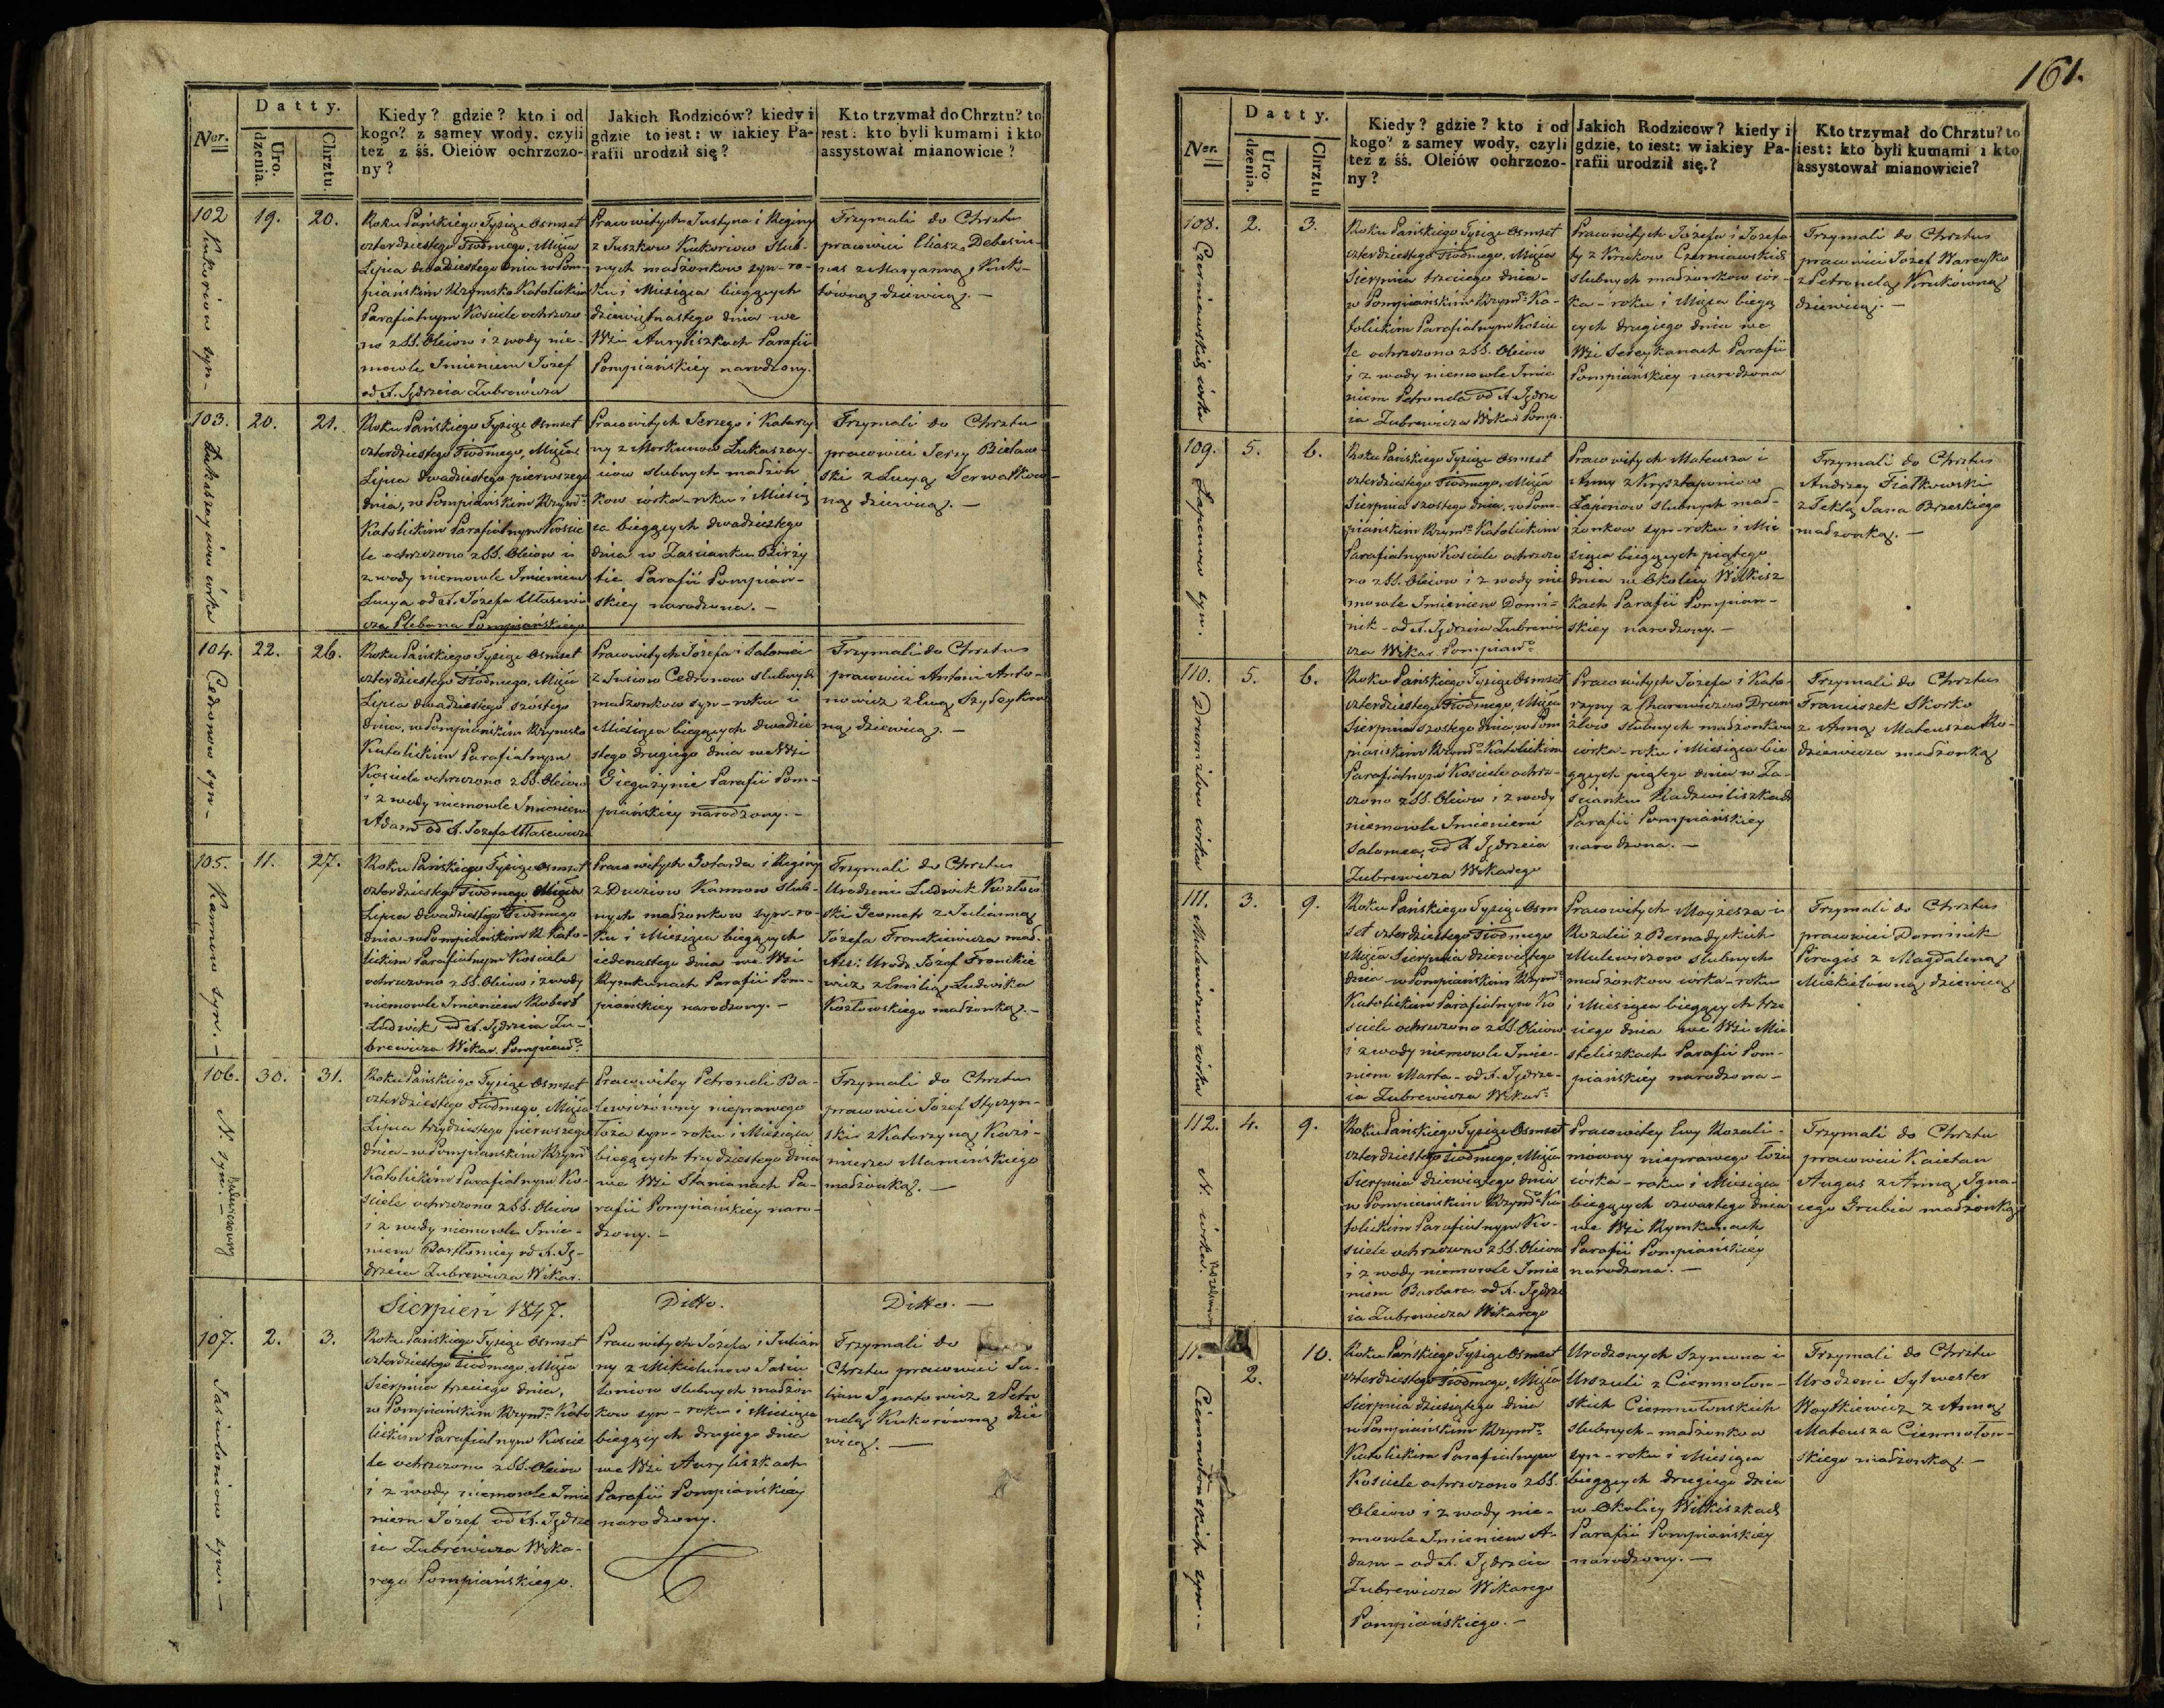 Datty.
Ner.
Uro.
dzenia.
Chrztu.
Kiedy? gdzie? kto i od
kogo? z samey wody, czyli
też z śś. Oleiów ochrzczo-
ny?
Jakich Rodziców? kiedy i
gdzie to iest: w iakiey Pa-
rafii urodził się?
Kto trzymał do Chrztu? to
iest: kto byli kumami i kto
assystował mianowicie?
102
Kukoriow syn-
19.
20.
Roku Pańskiego Tysiąc Osmset
czterdziestego Siodmego, Miąca
Lipca dwadziestego dnia w Pom-
piańskim Rzymsko Katolickim
Parafialnym Kościele ochrzczo
no z SS. Oleiow i z wody nie-
mowle Imieniem Józef
od X. Jędrzeia Zubrewicza
Pracowitych Justyna i Reginy
z Juszkow Kukoriow Slub-
nych małżonkow syn-ro-
ku i Miesiąca bieżących
dziewiętnastego dnia we
Wsi Auryliszkach Parafii
Pompiańskiey narodzony.
Trzymali do Chrztu
pracowici Eliasz Debesiu-
nas z Maryanną Kuko-
równą dziewicą.-
103.
Łukaszewiców córka
20.
21.
Roku Pańskiego Tysiąc Osmset
czterdziestego Siodmego, Miąca
Lipca dwadziestego pierwszego
dnia, w Pompiańskim Rzymo
Katolickim Parafialnym Koscie
le ochrzczono z SS. Oleiow i
z wody niemowle Imieniem
Łucya od X. Józefa Ułasewi
cza Plebana Pompiańskiego
Pracowitych Jerzego i Katarzy
ny z Morkunow Łukaszewi-
ciow slubnych małżon
kow córka-roku i Miesią
ca bieżących dwadziestego
dnia w Zascianku Birży
tie Parafii Pompiań-
skiey narodzona.-
Trzymali do Chrztu
pracowici Jerzy Bielaw-
ski z Łucyą Serwatkow-
ną dziewicą.-
104.
Cedronow syn-
22.
26.
Roku Pańskiego Tysiąc Osmset
czterdziestego Siodmego, Miąca
Lipca dwadziestego szóstego
dnia, w Pompiańskim Rzymsko
Katolickim Parafialnym
Kosciele ochrzczono z SS. Oleiow
i z wody niemowle Imieniem
Adam od X. Jozefa Ułasewicza
Pracowitych Józefa i Salomei
z Cedronow slubnych
małżonkow syn-roku i
Miesiąca bieżących dwadzie
stego drugiego dnia we Wsi
Giegużynie Parafii Pom-
piańskiey narodzony.-
Trzymali do Chrztu
pracowici Antoni Anto-
nowicz z Ewą Szydeykow
ną dziewicą.-
105.
Kannow syn.-
11.
27.
Roku Pańskiego Tysiąc Osmset
czterdziestego Siodmego Miąca
Lipca dwadziestego Siodmego
dnia-w Pompiańskim R. Kato-
lickim Parafialnym Kościele
ochrzczono z SS. Oleiow i z wody
niemowle Imieniem Robert
Ludwik od X. Jędrzeia Zu-
brewicza Wikar. Pompiańo
Pracowitych Gotarda i Reginy
z Kannow slub-
nych małżonkow syn-ro-
ku i Miesiąca bieżących
iedenastego dnia we Wsi
Rymkunach Parafii Pom-
piańskiey narodzony.-
Trzymali do Chrztu
Urodzeni Ludwik Kozłow
ski Geometr z Julianną
Józefa Fronckiewicza mał.
Ass: Urodz. Józef Fronckie
wicz z Emilią Ludwika
Kozłowskiego małżonką.-
106.
N. syn.-
Balewiczowny
30.
31.
Roku Pańskiego Tysiąc Osmset
czterdziestego Siodmego, Miąca
Lipca trzydziestego pierwszego
dnia-w Pompiańskim Rzymo
Katolickim Parafialnym Ko-
sciele ochrzczono z SS. Oleiow
i z wody niemowle Imie-
niem Bartłomiey od X. Ję-
drzeia Zubrewicza Wikar.
Pracowitey Petroneli Ba-
lewiczówny nieprawego
łoża syn-roku i Miesiąca
bieżących trzydziestego dnia
we Wsi Stanianach Pa-
rafii Pompiańskiey naro-
dzony.-
Trzymali do Chrztu
pracowici Józef Styczyn-
ski z Katarzyną Kazi-
mierza Mamińskiego
małżonką.-
Sierpień 1847.
Ditto.
Ditto.-
107.
Jasiuloniow syn.-
2.
3.
Roku Pańskiego Tysiąc Osmset
czterdziestego Siodmego, Miąca
Sierpnia trzeciego dnia,
w Pompiańskim Rzymo Kato
lickim Parafialnym Koscie
le ochrzczono z SS. Oleiow
i z wody niemowle Imie
niem Józef od X. Jędrze
ia Zubrewicza Wika-
rego Pompiańskiego.
Pracowitych Józefa i Julian
ny z Mikielunow Jasiu
loniow slubnych małżon
kow syn-roku i Miesiąca
bieżących drugiego dnia
we Wsi Auryliszkach
Parafii Pompiańskiey
narodzony.
Trzymali do
Chrztu pracowici Ju-
lian Ignatowicz z Petro
nelą Kukorówną dzie
wicą.-
161.
Datty.
Ner.
Uro
dzenia.
Chrztu
Kiedy? gdzie? kto i od
kogo? z samey wody, czyli
też z śś. Oleiów ochrzczo-
ny?
Jakich Rodzicow? kiedy i
gdzie, to iest: w iakiey Pa-
rafii urodził się.?
Kto trzymał do Chrztu? to
iest: kto byli kumami i kto
assystował mianowicie?
108.
Czerniawskich córka
2.
3.
Roku Pańskiego Tysiąc Osmset
czterdziestego Siodmego, Miąca
Sierpnia trzeciego dnia-
w Pompiańskim Rzymo Ka-
tolickim Parafialnym Koscie
le ochrzczono z SS. Oleiow
i z wody niemowle Imie
niem Petronela od X. Jędrze
ia Zubrewicza Wikar. Pomp.
Pracowitych Józefa i Jozefa
ty z Krukow Czerniawskich
slubnych małżonkow cór-
ka-roku i Miąca bieżą
cych drugiego dnia we
Wsi Sereykanach Parafii
Pompiańskiey narodzona
Trzymali do Chrztu
pracowici Józef Wareyko
z Petronelą Krukówną
dziewicą.-
109.
Łaponow syn.
5.
6.
Roku Pańskiego Tysiąc Osmset
czterdziestego Siodmego, Miąca
Sierpnia szostego dnia, w Pom-
piańskim Rzymo Katolickim
Parafialnym Kosciele ochrzczo
no z SS. Oleiow i z wody nie
mowle Imieniem Domi-
nik-od X. Jędrzeia Zubrewi
cza Wikar. Pompiańo
Pracowitych Mateusza i
Anny z Krysztaponiow
Łaponow slubnych mał-
żonkow syn-roku i Mie
siąca bieżących piątego
dnia w Okolicy Wilkisz
kach Parafii Pompian-
skiey narodzony.-
Trzymali do Chrztu
Andrzey Fiałkowski
z Teklą Jana Brzeskiego
małżonką.-
110.
córka
5.
6.
Roku Pańskiego Tysiąc Osmset
czterdziestego Siodmego, Miąca
Sierpnia szostego dnia, w Pom
piańskim Rzymo Katolickim
Parafialnym Kosciele ochrz-
czono z SS. Oleiow i z wody
niemowle Imieniem
Salomea, od X. Jędrzeia
Zubrewicza Wikarego
Pracowitych Józefa i Kata-
rzyny z
slubnych małżonkow
córka-roku i Miesiąca bie
żących piątego dnia w Za-
scianku Radziwiliszkach
Parafii Pompiańskiey
narodzona.-
Trzymali do Chrztu
Franciszek Skorko
z Anną Mateusza Ro-
dziewicza małżonką
111.
Mulewiczow córka
3.
9.
Roku Pańskiego Tysiąc Osm
set czterdziestego Siodmego
Miąca Sierpnia dziewiątego
dnia-w Pompiańskim Rzymo
Katolickim Parafialnym Ko
sciele ochrzczono z SS. Oleiow
i z wody niemowle Imie-
niem Marta-od X. Jędrze-
ia Zubrewicza Wikaro
Pracowitych Moyżesza i
Rozalii z Bernadyckich
Mulewiczow slubnych
małżonkow córka-roku
i Miesiąca bieżących trze
ciego dnia we Wsi Mie
steliszkach Parafii Pom-
piańskiey narodzona-
Trzymali do Chrztu
pracowici Dominik
Piragis z Magdaleną
Mikielówną dziewicą
112.
N. córka.
4.
9.
Roku Pańskiego Tysiąc Osmset
czterdziestego Siodmego, Miąca
Sierpnia dziewiątego dnia
w Pompiańskim Rzymo Ka
tolickim Parafialnym Ko-
sciele ochrzczono z SS. Oleiow
i z wody niemowle Imie
niem Barbara, od X. Jędrze
ia Zubrewicza Wikarego
Pracowitey Ewy Rozali-
mowny nieprawego łoża
córka-roku i Miesiąca
bieżących czwartego dnia
we Wsi Rymkunach
Parafii Pompiańskiey
narodzona.-
Trzymali do Chrztu
pracowici Kaietan
Augus z Anną Igna-
cego Grubia małżonką
Ciemnołonskich syn.-
2.
10.
Roku Pańskiego Tysiąc Osmset
czterdziestego Siodmego, Miąca
Sierpnia dziesiątego dnia
w Pompiańskim Rzymo
Katolickim Parafialnym
Kosciele ochrzczono z SS.
Oleiow i z wody nie-
mowle Imieniem A-
dam-od X. Jędrzeia
Zubrewicza Wikarego
Pompiańskiego.-
Urodzonych Szymona i
Urszuli z Ciemnołon-
skich Ciemnołonskich
slubnych-małżonkow
syn-roku i Miesiąca
bieżących drugiego dnia
w Okolicy Wilkiszkach
Parafii Pompiańskiey
narodzony.-
Trzymali do Chrztu
Urodzeni Sylwester
Woytkiewicz z Anną
Mateusza Ciemnołon-
skiego małżonką.-